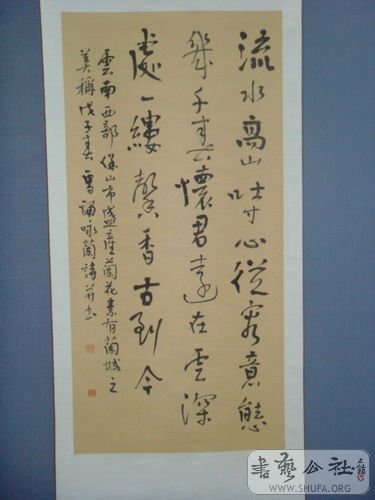 流水高山吐寸心從容意態
幾千春懷君遠在雲深
處一縷馨香古到今
雲南西部保山市盛產蘭花素有蘭城之
美稱戊子春誦詠蘭詩并書
書藝公社
WWW.SHUFA.ORG